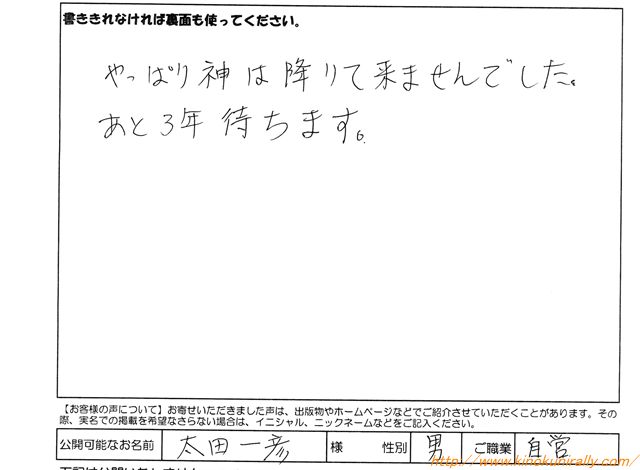 書ききれなければ裏面も使ってください。
やっぱり神は降りて来ませんでした。
あと3年待ちます。
【お客様の声について】お寄せいただきました声は、出版物やホームページなどでご紹介させていただくことがあります。その
際、実名での掲載を希望なさらない場合は、イニシャル、ニックネームなどをご記入ください。
公開可能なお名前 太田一彦 様 性別 男 ご職業 自営
http://www.kinokunirally.com/